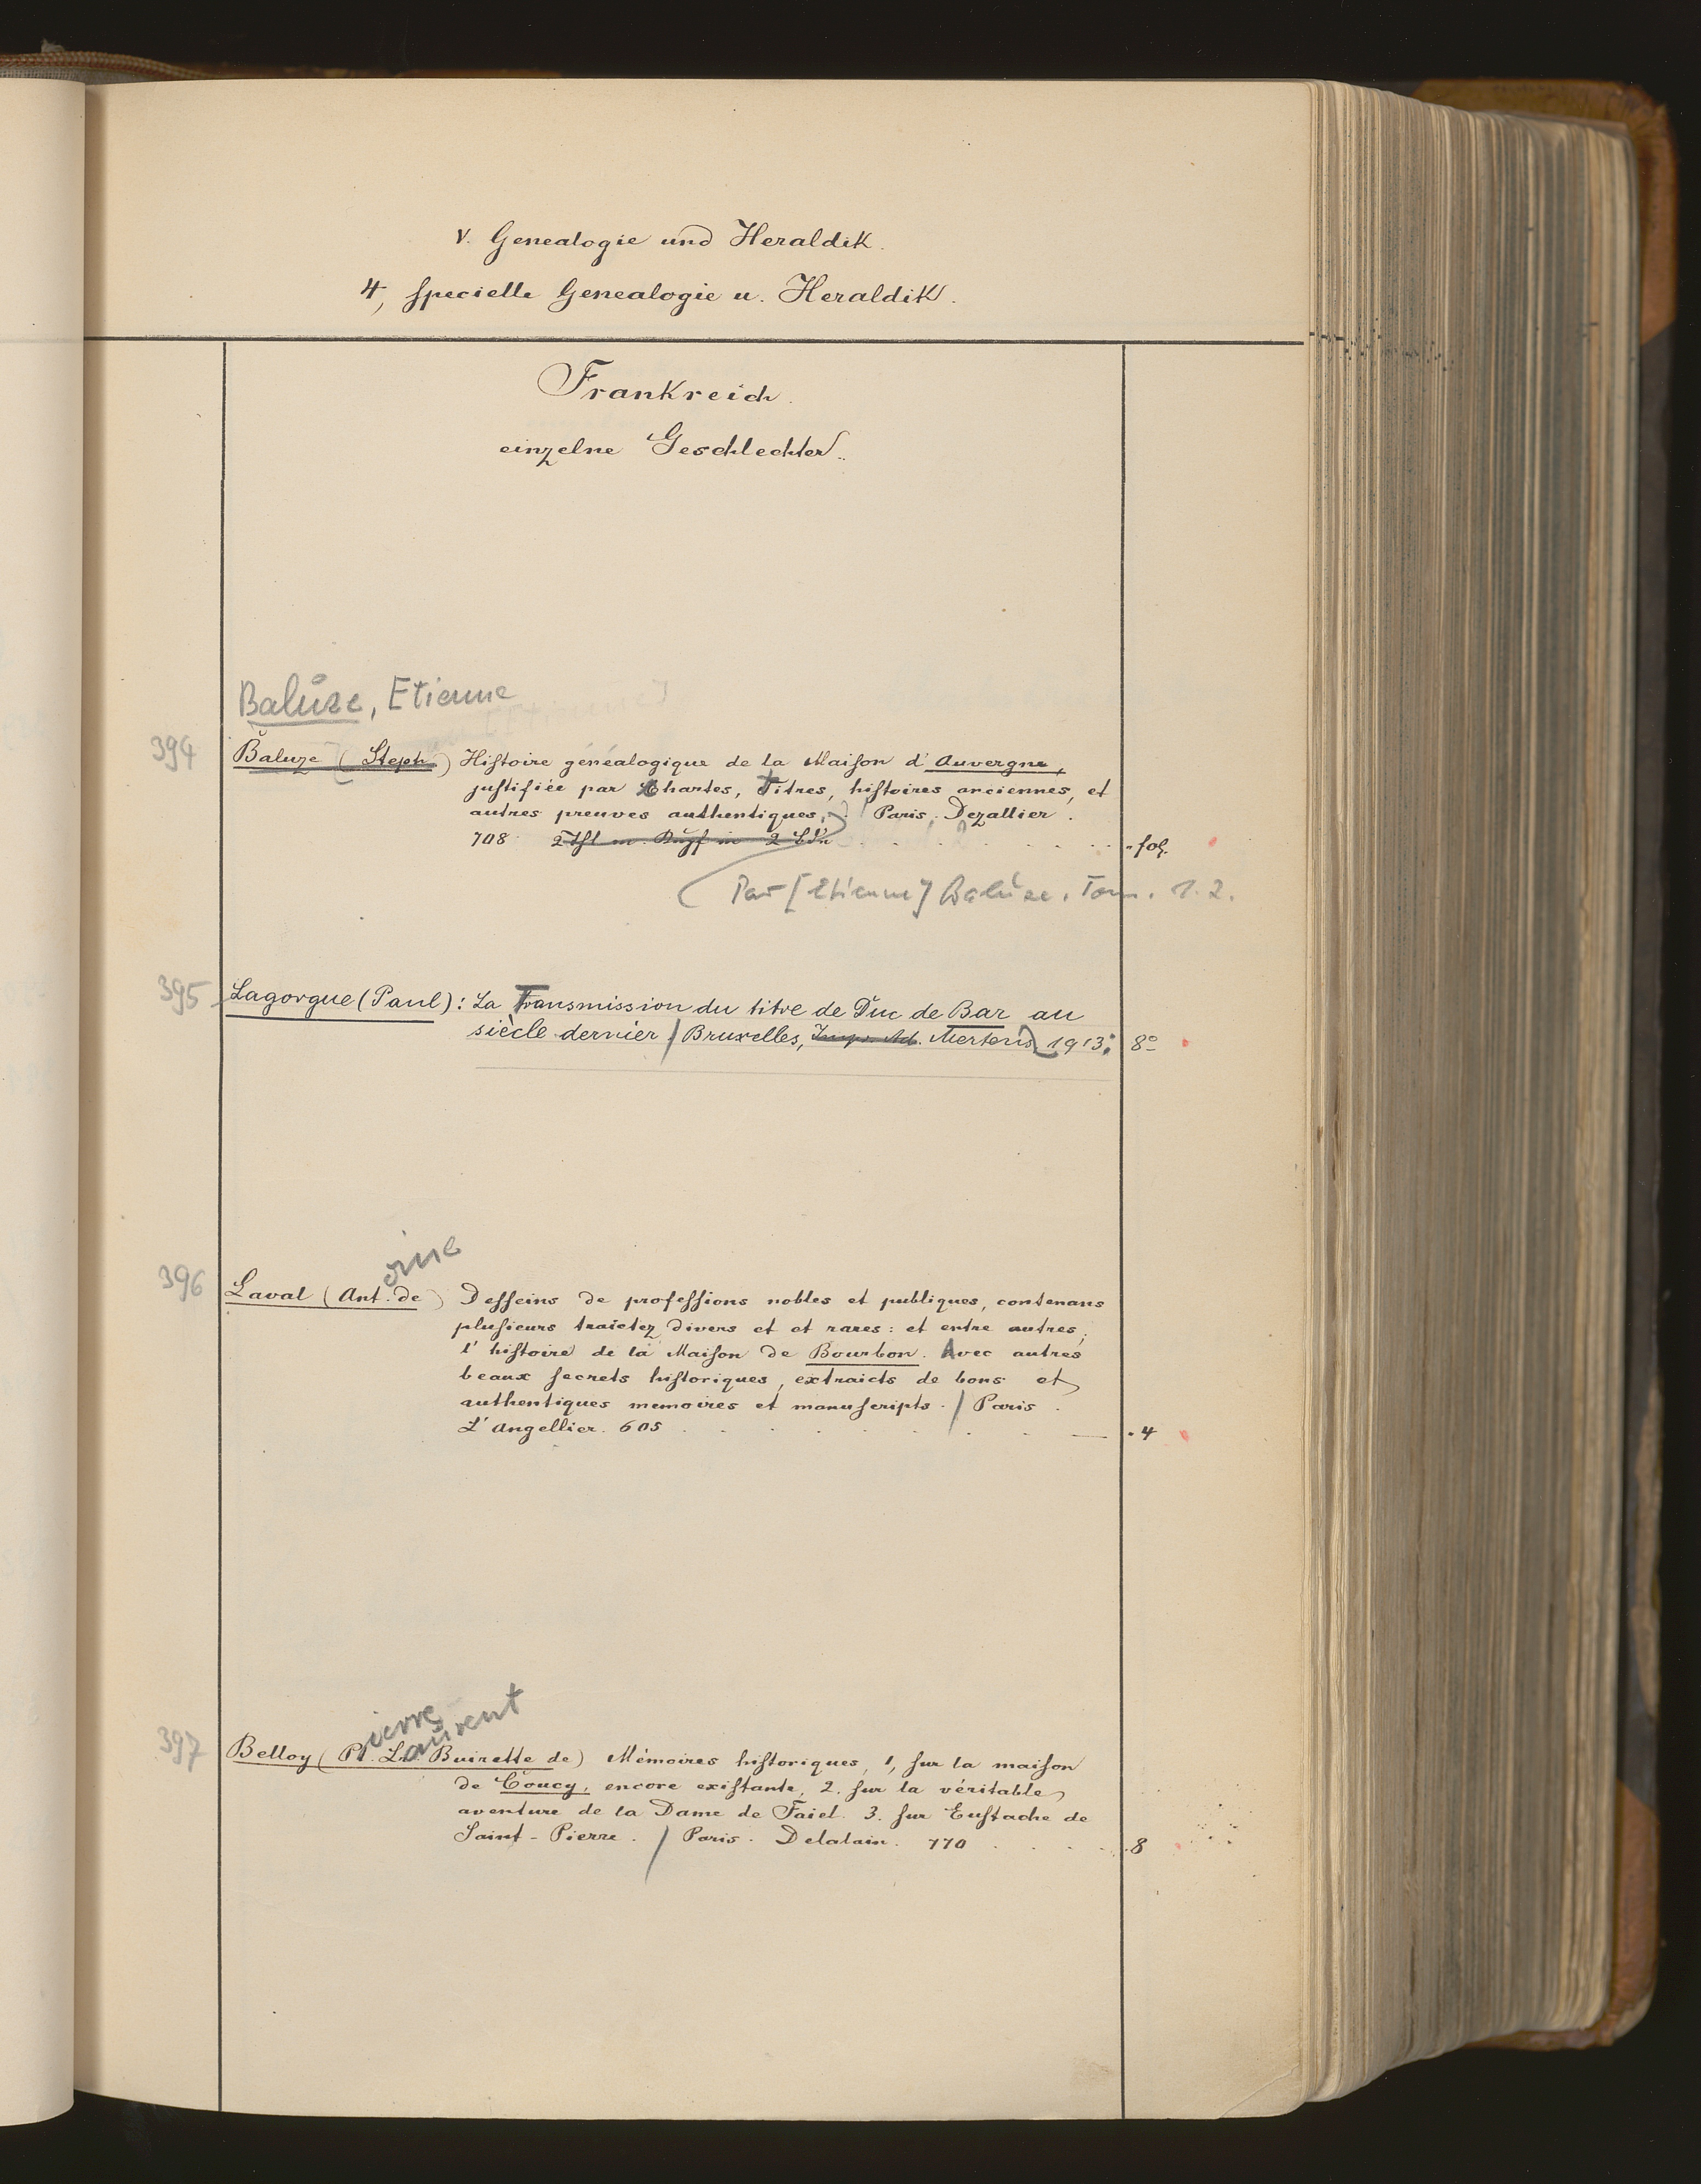 V. Genealogie und Heraldik.
4, specielle Genealogie u. Heraldik.
Frankreich.
einzelne Geschlechter.
Balŭze, Etienne
394 Baluze (Steph.) Histoire généalogique de la Maison d'Auvergne,
justifiée par Chartes, Titres, histoires anciennes, et
autres preuves authentiques, / Paris. Dezallier.
708 2 Thl m. in 2 Bdn . . . . . fol.
Par [Etienne] Balŭze. Tom. 1. 2.
395 Lagorgue (Paul): La Transmission du titre de Duc de Bar au
siècle dernier / Bruxelles, Imp. Ad. Mertens 1913. 8°
oine
396 Laval (Ant. de) Desseins de professions nobles et publiques, contenans
plusieurs traictez divers et et rares: et entre autres,
l'histoire de la Maison de Bourbon. Avec autres
beaux secrets historiques, extraicts de bons et
authentiques memoires et manuscripts. / Paris.
L'Angellier. 605 . . . . . 4
ierre aŭrent
397 Belloy (Pt. Lr. Buirette de) Mémoires historiques, 1, sur la maison
de Coucy, encore existante, 2. sur la véritable
aventure de la Dame de Faiel. 3. sur Eustache de
Saint-Pierre. / Paris. Delalain. 770 . . . 8